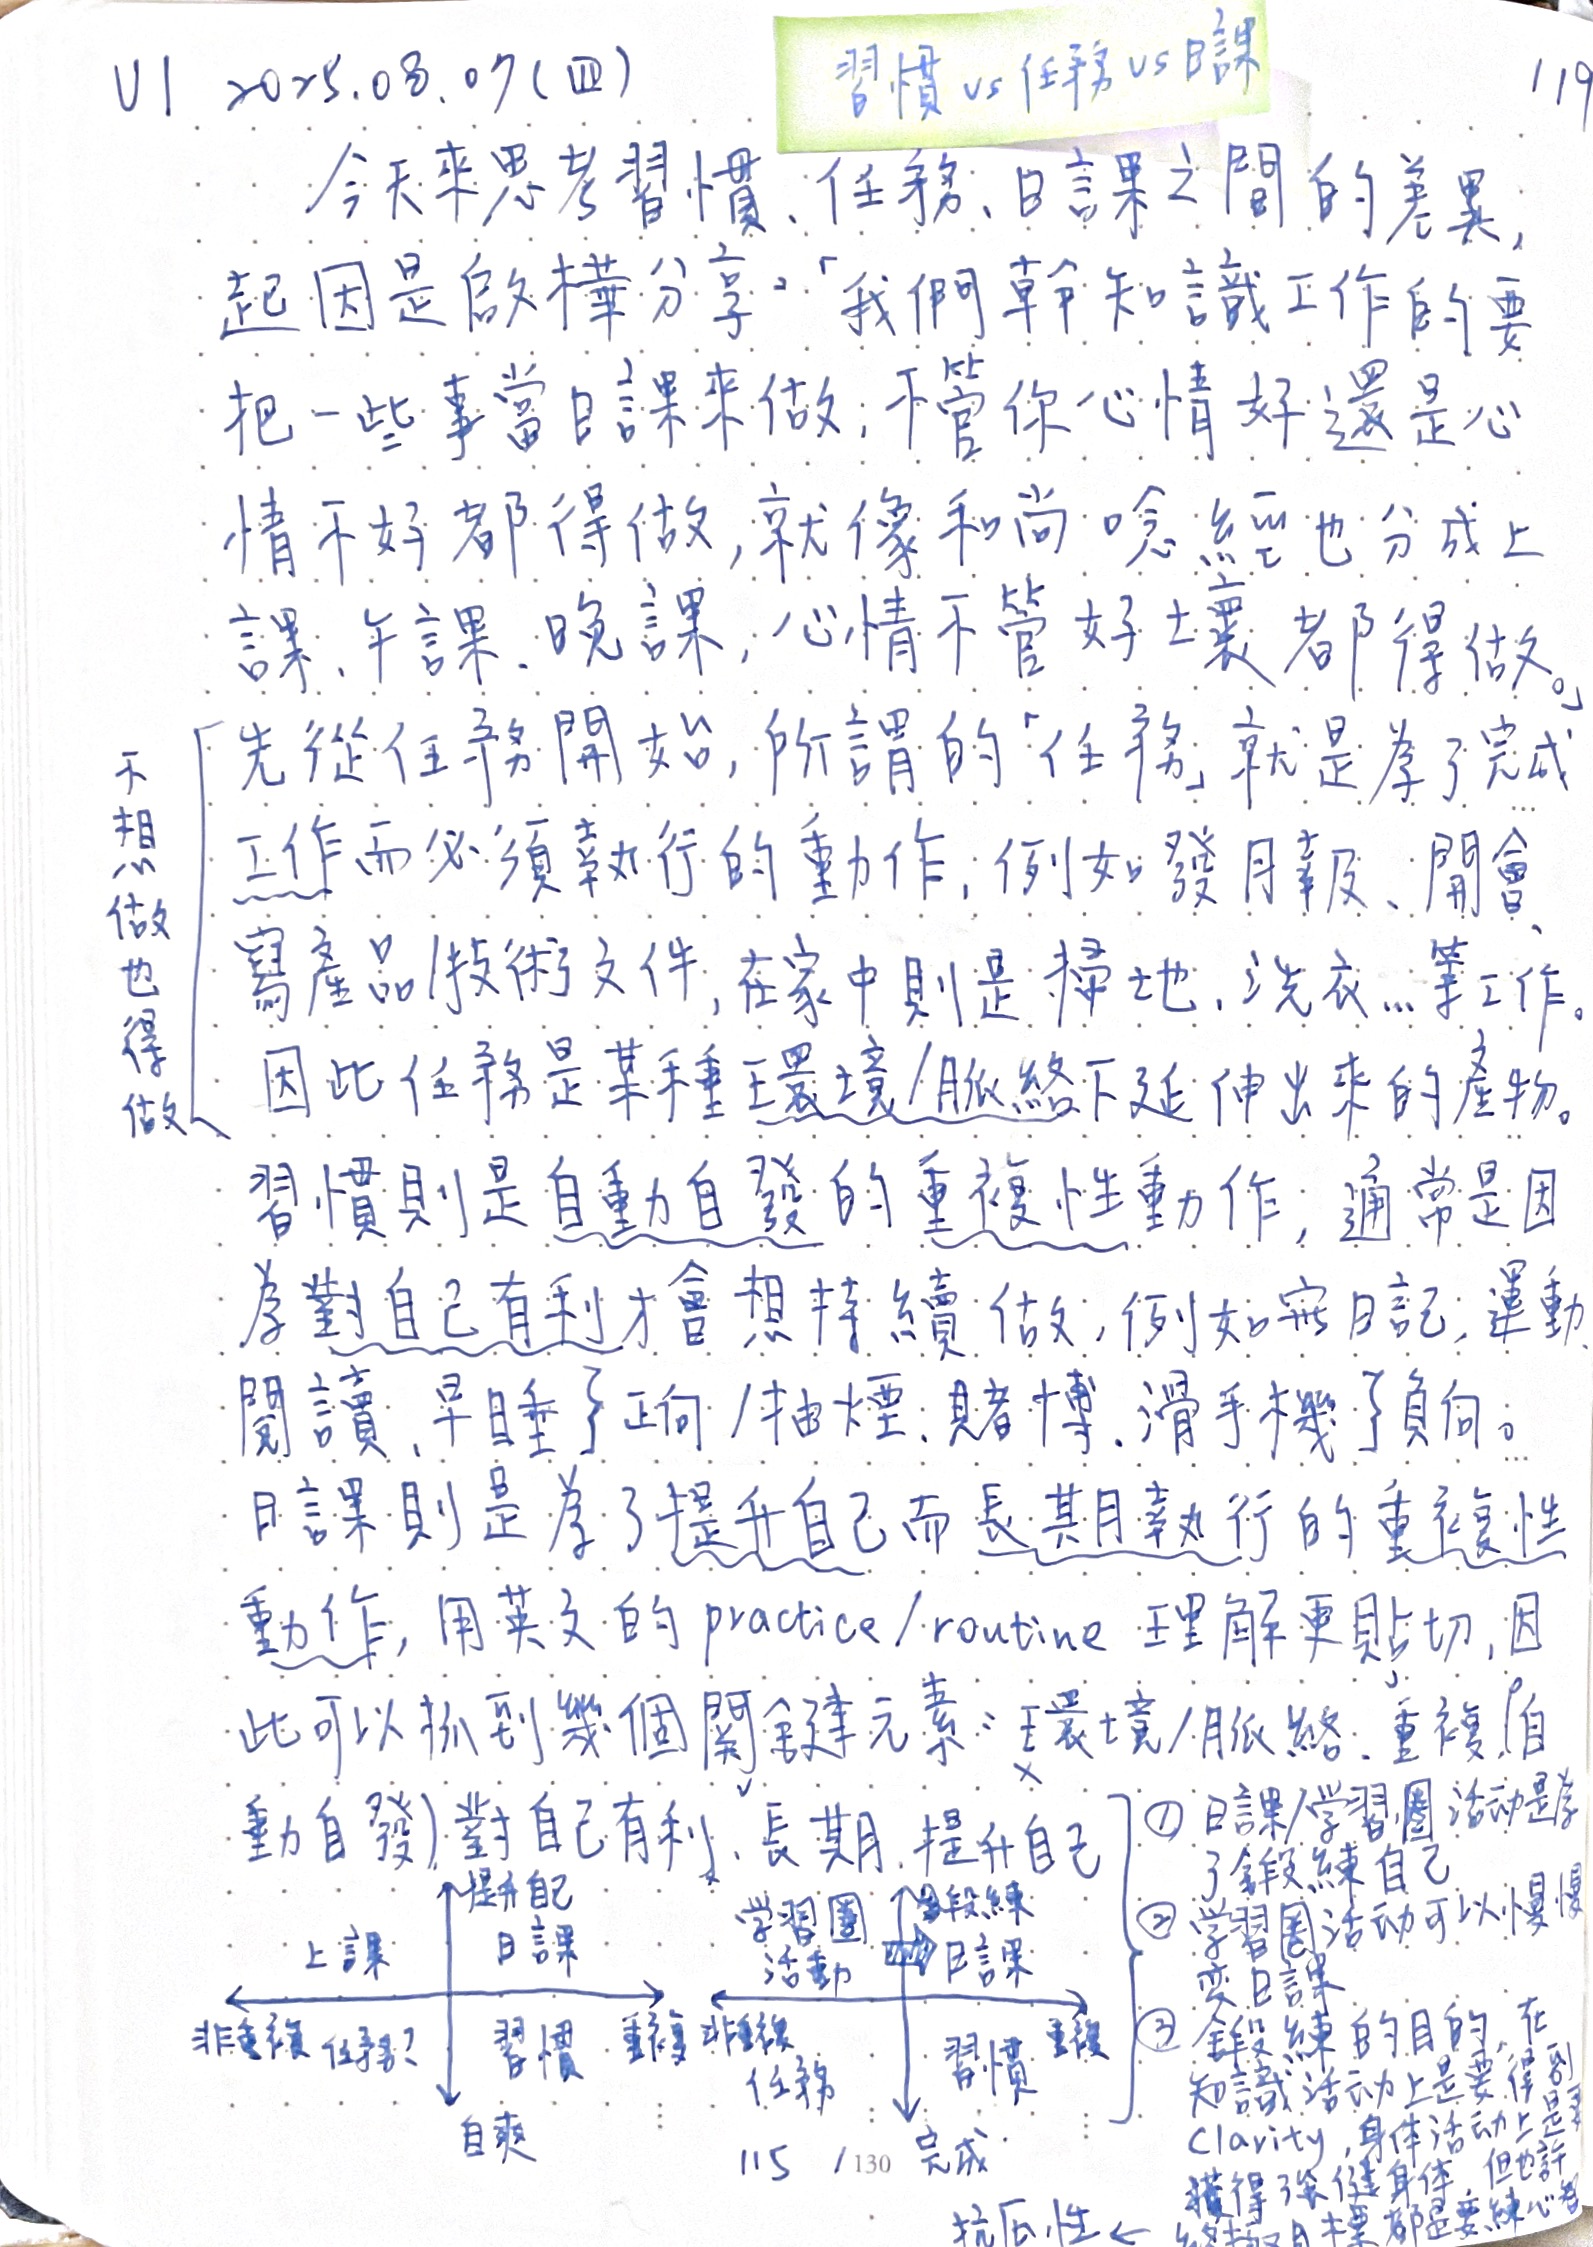 U1 2025.08.07(四)
習慣 vs 任務 vs 日課
119
今天來思考習慣、任務、日課之間的差異,
起因是啟樺分享:「我們幹知識工作的要
把一些事當日課來做,不管你心情好還是心
情不好都得做,就像和尚唸經也分成上
課、午課、晚課,心情不管好壞都得做。」
先從任務開始,所謂的「任務」就是為了完成
工作而必須執行的動作,例如發月報、開會、
寫產品/技術文件,在家中則是掃地、洗衣...等工作。
因此任務是某種環境/脈絡下延伸出來的產物。
不想做也得做
習慣則是自動自發的重複性動作,通常是因
為對自己有利才會想持續做,例如寫日記,運動、
閱讀、早睡了正向/抽煙、賭博、滑手機了負向。
日課則是為了提升自己而長期執行的重複性
動作,用英文的practice/routine 理解更貼切,因
此可以抓到幾個關鍵元素:環境/脈絡、重複(自
動自發)對自己有利、長期、提升自己
提升自己
上課 日課
非重複 任務? 習慣 重複
自爽
学習圈 鍛練
活動 日課
非重複 重複
任務 習慣
完成
① 日課/学習圈活动是為
了鍛練自己
② 学習圈活动可以慢慢
变日課
③ 鍛練的目的,在
知識活动上是要得到
Clarity,身体活动上是要
獲得強健身体,但也許
終極目標都是要練心智
抗压性 ←
115 /130